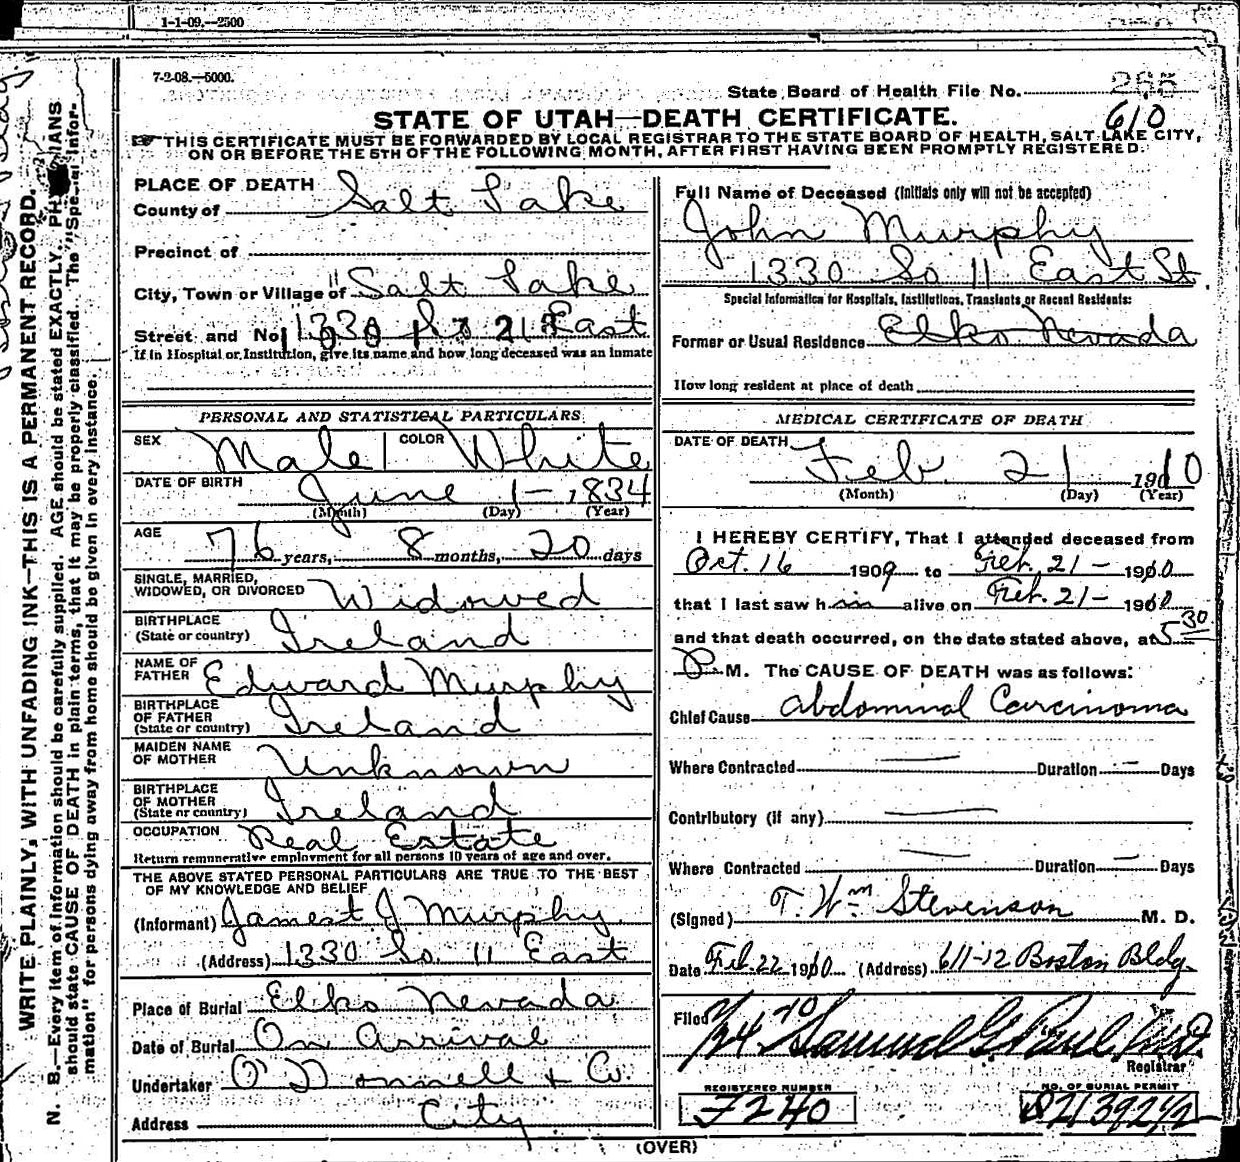 1-1-09.—2500
7-2-08.—5000.
State Board of Health File No. 255
610
STATE OF UTAH—DEATH CERTIFICATE.
THIS CERTIFICATE MUST BE FORWARDED BY LOCAL REGISTRAR TO THE STATE BOARD OF HEALTH, SALT LAKE CITY,
ON OR BEFORE THE 5TH OF THE FOLLOWING MONTH, AFTER FIRST HAVING BEEN PROMPTLY REGISTERED.
WRITE PLAINLY, WITH UNFADING INK—THIS IS A PERMANENT RECORD.
N. B.—Every item of information should be carefully supplied. AGE should be stated EXACTLY. PHYSICIANS
should state CAUSE OF DEATH in plain terms, that it may be properly classified. The "Special Infor-
mation" for persons dying away from home should be given in every instance.
PLACE OF DEATH
County of Salt Lake
Precinct of
City, Town or Village of Salt Lake
Street and No. 1330 So 11 East
If in Hospital or Institution, give its name and how long deceased was an inmate
PERSONAL AND STATISTICAL PARTICULARS
SEX Male COLOR White
DATE OF BIRTH June 1 - 1834
(Month) (Day) (Year)
AGE 76 years, 8 months, 20 days
SINGLE, MARRIED,
WIDOWED, OR DIVORCED Widowed
BIRTHPLACE
(State or country) Ireland
NAME OF
FATHER Edward Murphy
BIRTHPLACE
OF FATHER
(State or country) Ireland
MAIDEN NAME
OF MOTHER Unknown
BIRTHPLACE
OF MOTHER
(State or country) Ireland
OCCUPATION Real Estate
Return remunerative employment for all persons 10 years of age and over.
THE ABOVE STATED PERSONAL PARTICULARS ARE TRUE TO THE BEST
OF MY KNOWLEDGE AND BELIEF
(Informant) James J Murphy
(Address) 1330 So. 11 East
Place of Burial Elko Nevada
Date of Burial On Arrival
Undertaker O'Donnell & Co.
Address City
Full Name of Deceased (Initials only will not be accepted)
John Murphy
1330 So 11 East St.
Special Information for Hospitals, Institutions, Transients or Recent Residents:
Former or Usual Residence Elko Nevada
How long resident at place of death
MEDICAL CERTIFICATE OF DEATH
DATE OF DEATH Feb. 21 1910
(Month) (Day) (Year)
I HEREBY CERTIFY, That I attended deceased from
Oct. 16 1909 to Feb. 21 - 1910
that I last saw him alive on Feb. 21 - 1910
and that death occurred, on the date stated above, at 5 30
P. M. The CAUSE OF DEATH was as follows:
Chief Cause Abdominal Carcinoma
Where Contracted — Duration — Days
Contributory (if any) —
Where Contracted — Duration — Days
(Signed) T. Wm Stevenson M. D.
Date Feb. 22 1910 (Address) 611-12 Boston Bldg.
Filed 2/24 '10 Samuel G. Paul M.D.
Registrar
REGISTERED NUMBER
F240
NO. OF BURIAL PERMIT
(OVER)